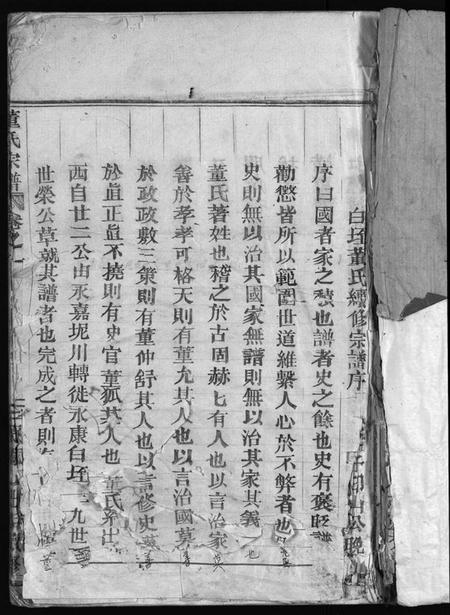 白坯董氏續修宗譜序
序曰國者家之積也譜者史之餘也史有褒貶譜
勸懲皆所以範圍世道維繫人心於不弊者也
史則無以治其國家無譜則無以治其家其義一也
董氏著姓也稽之於古固赫匕有人也以言治家莫
善於孝孝可格天則有董允其人也以言治國莫善
於政政敷三策則有董仲舒其人也以言修史莫善
於直正直不撓則有史官董狐其人也董氏系出
西自廿二公由永嘉坭川轉徙永康白坯 九世
世榮公草就其譜者也完成之者則
董氏宗譜 卷之一